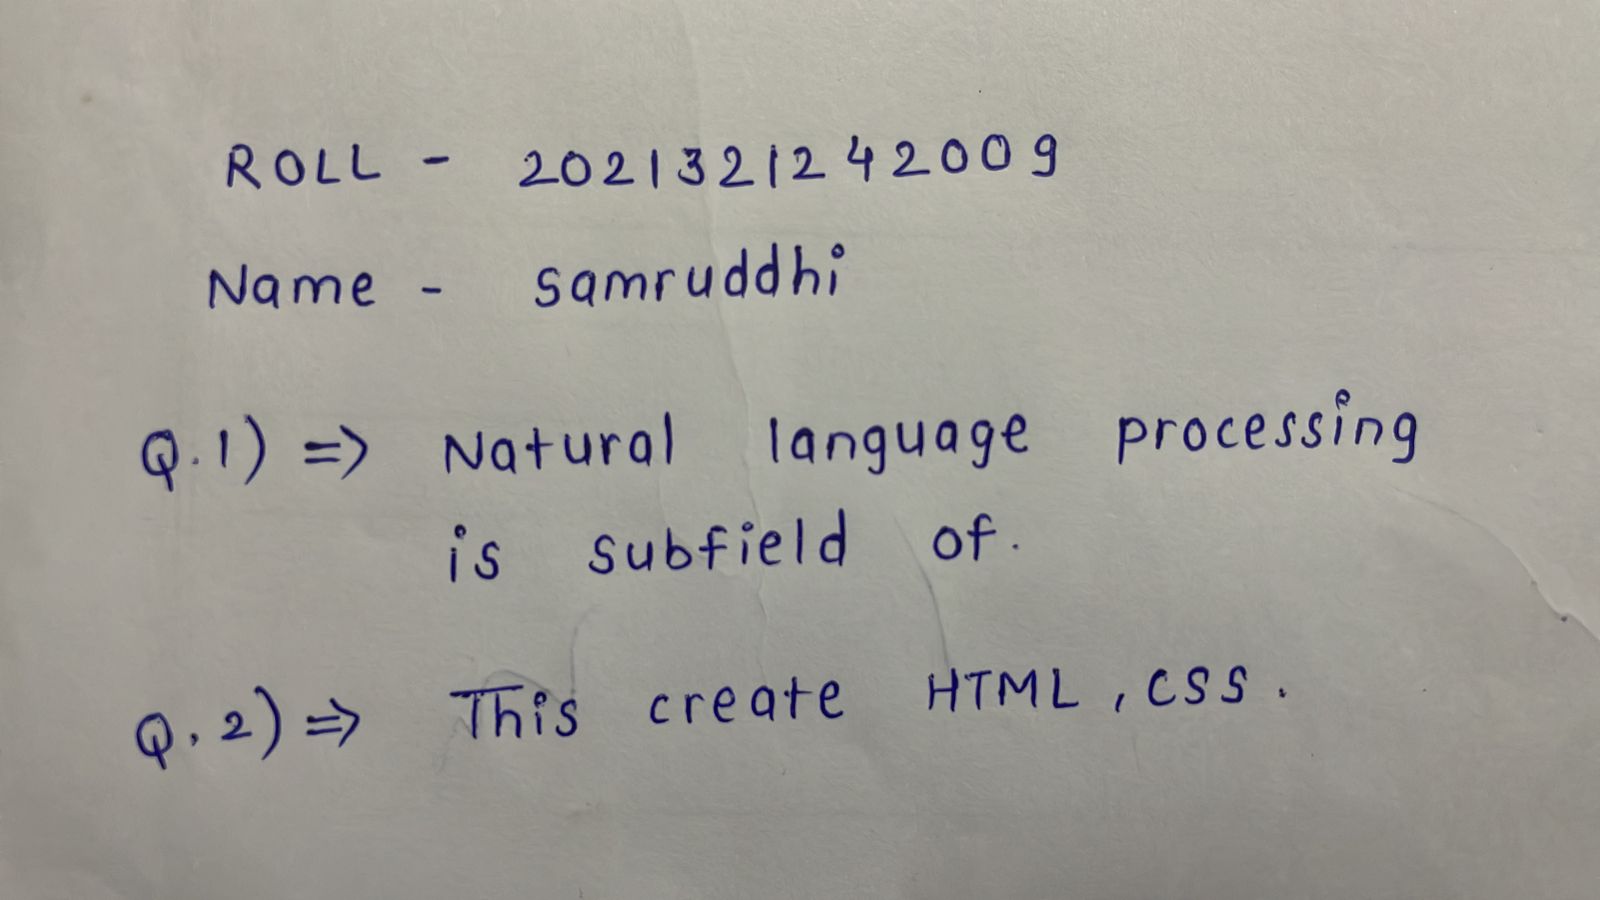 ROLL - 2021321242009
Name - Samruddhi
Q.1) => Natural language processing
is subfield of.
Q.2) => This create HTML, CSS.